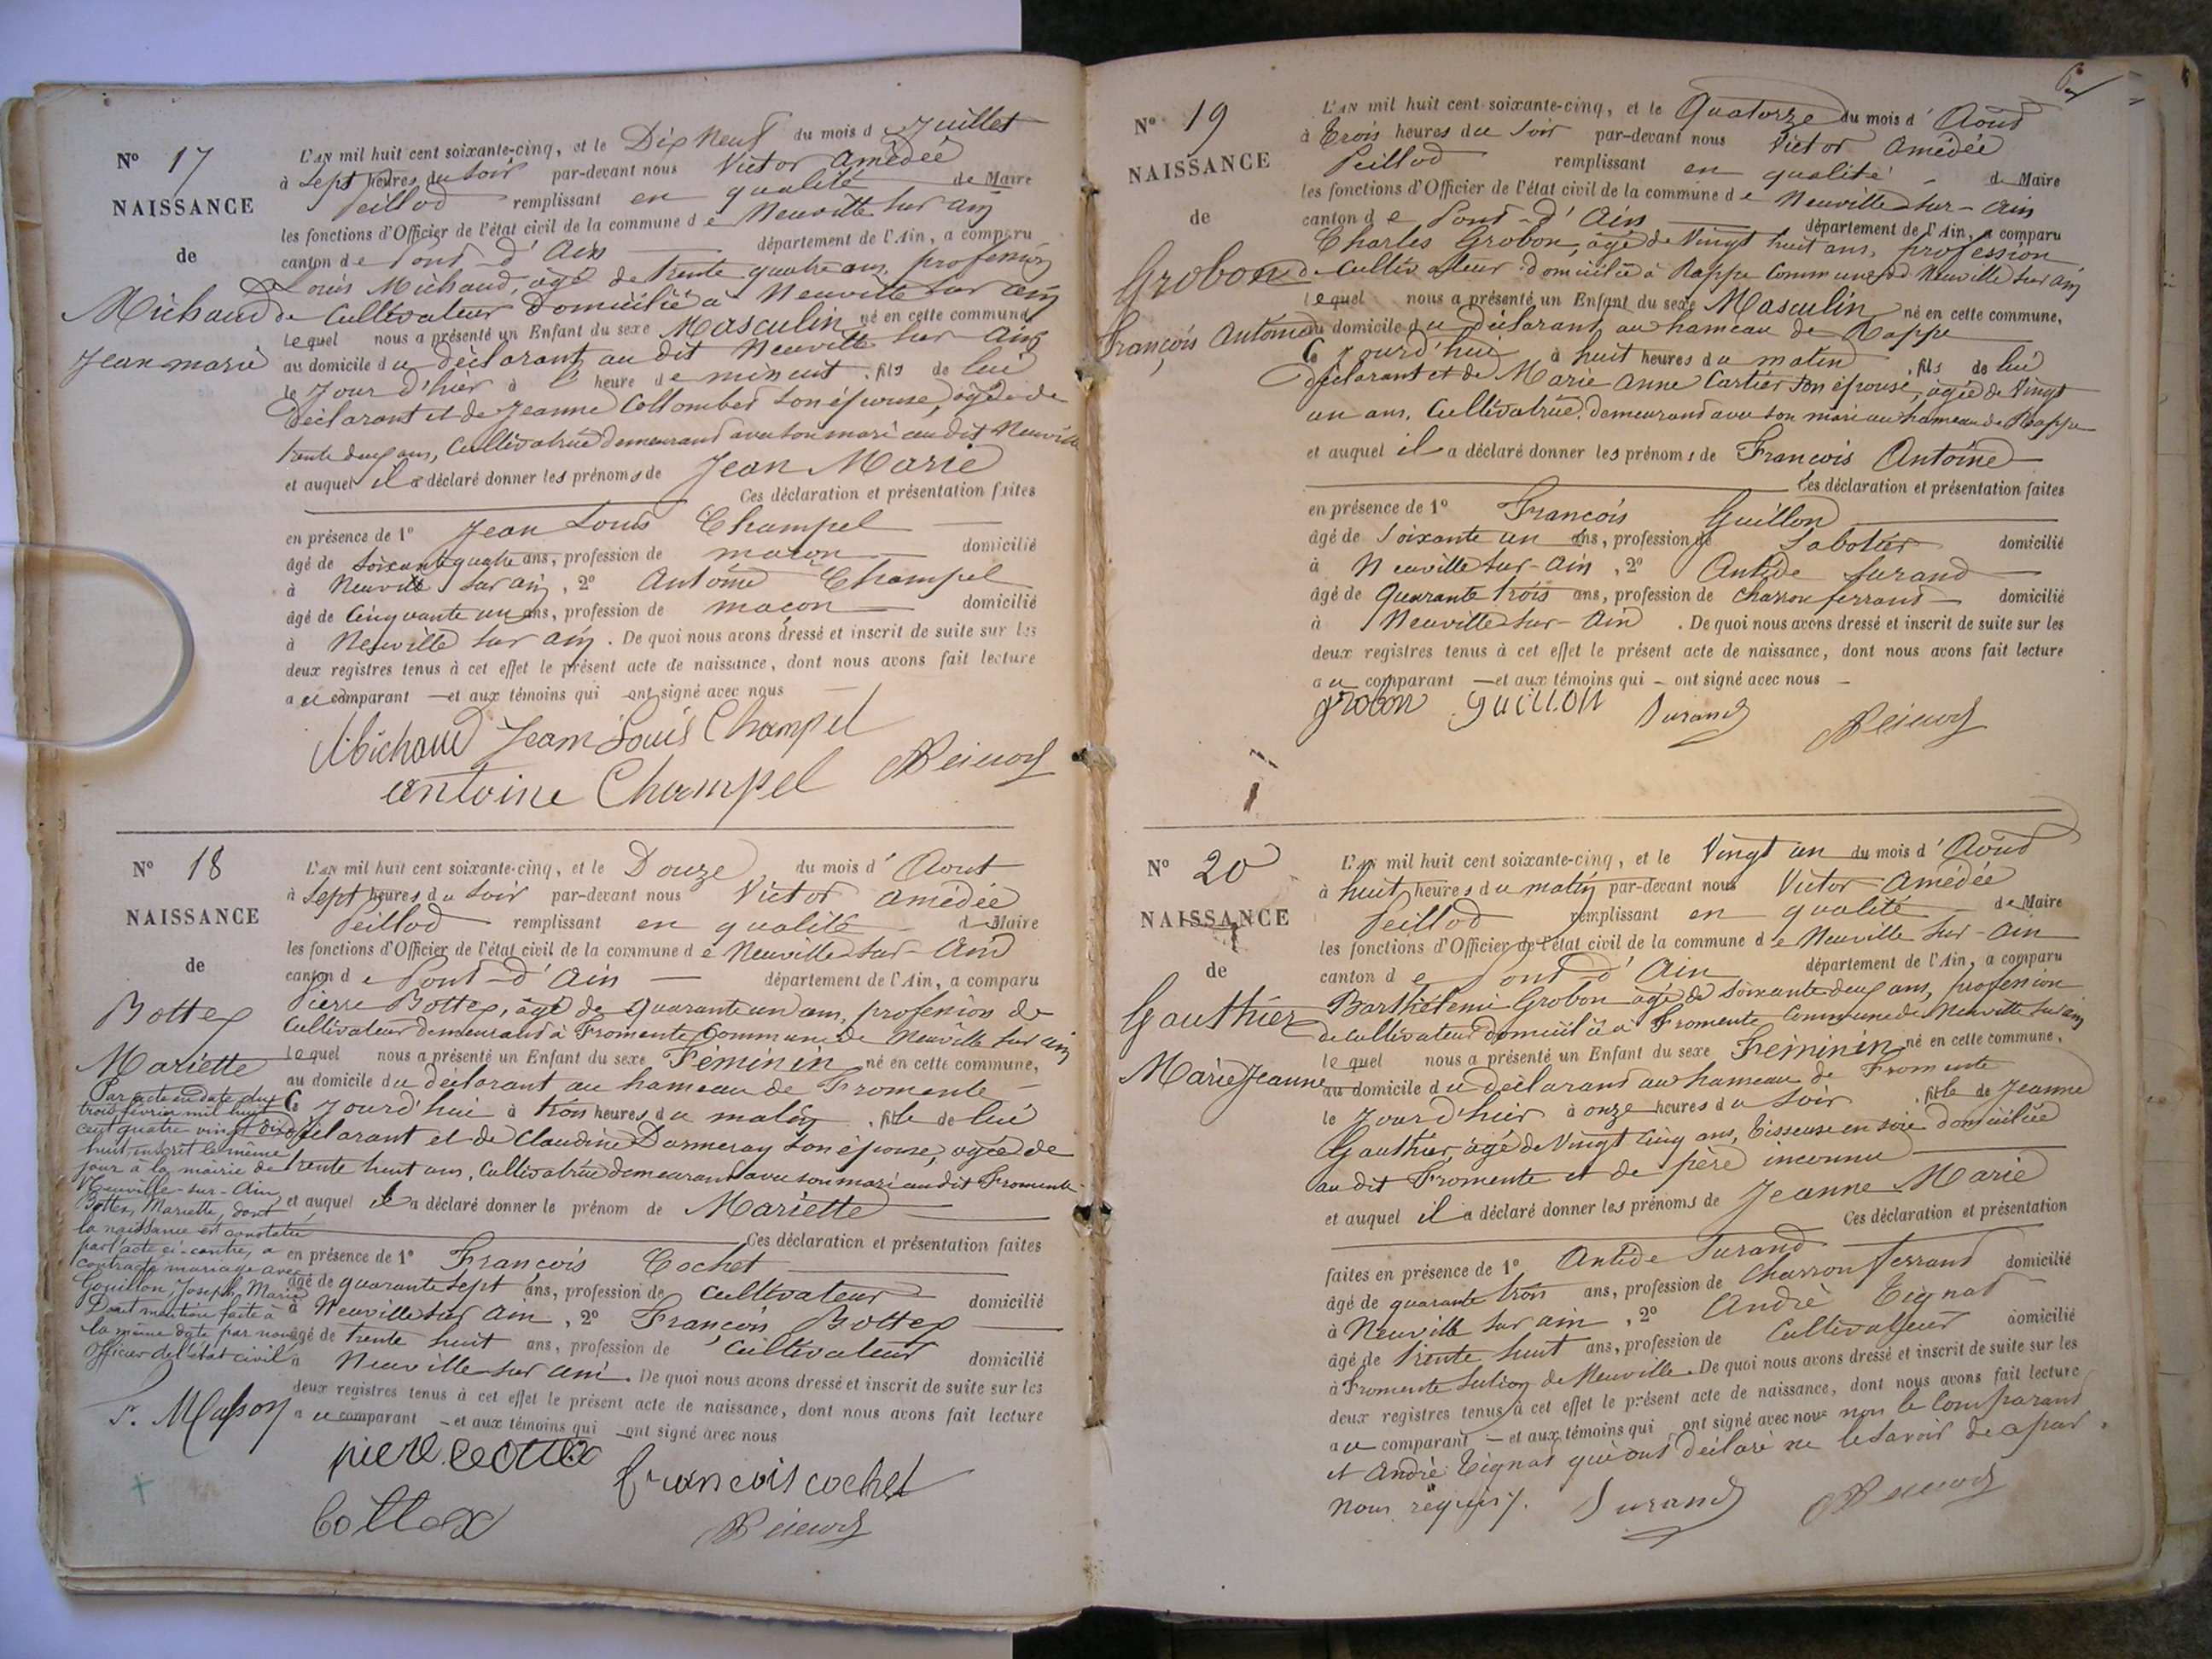 N° 17
NAISSANCE
de
Michaud
Jean marie
L'AN mil huit cent soixante-cinq, et le Dix Neuf du mois d Juillet
à Sept heures du Soir par-devant nous Victor Amédée
Peillod remplissant en qualité de Maire
les fonctions d'Officier de l'état civil de la commune de Neuville Sur ain
canton de Pont-d'Ain département de l'Ain, a comparu
Louis Michaud, agé de trente quatre ans, profession
de Cultivateur domicilié à Neuville Sur ain
lequel nous a présenté un Enfant du sexe Masculin né en cette commune
au domicile du déclarant, au dit Neuville Sur Ain
le Jour d'hier à l' heure de minuit , fils de lui
déclarant et de Jeanne Collombet son épouse, agée de
trente deux ans, Cultivatrice demeurant avec son mari au dit Neuville
et auquel il a déclaré donner les prénoms de Jean Marie
Ces déclaration et présentation faites
en présence de 1° Jean Louis Champel
âgé de soixante quatre ans, profession de maçon domicilié
à Neuville Sur ain, 2° Antoine Champel
âgé de Cinquante un ans, profession de maçon domicilié
à Neuville sur ain. De quoi nous avons dressé et inscrit de suite sur les
deux registres tenus à cet effet le présent acte de naissance, dont nous avons fait lecture
au comparant — et aux témoins qui ont signé avec nous —
Michaud Jean Louis Champel
antoine Champel Peillod
N° 18
NAISSANCE
de
Bottex
Mariette
Par acte en date du
trois février mil huit
cent quatre vingt dix
huit, inscrit le même
jour à la mairie de
Neuville-sur-Ain,
Bottex, Mariette, dont
la naissance est constatée
par l'acte ci-contre, a
contracté mariage avec
Gouillon Joseph, Marie
Dont mention faite à
la même date par nous
Officier de l'état civil
L'AN mil huit cent soixante-cinq, et le Douze du mois d' Aout
à Sept heures du Soir par-devant nous Victor Amédée
Peillod remplissant en qualité de Maire
les fonctions d'Officier de l'état civil de la commune de Neuville Sur-Ain
canton de Pont-d'Ain — département de l'Ain, a comparu
Pierre Bottex, agé de quarante un ans, profession de
Cultivateur demeurant à Fromente, Commune de Neuville Sur ain
lequel nous a présenté un Enfant du sexe Féminin né en cette commune,
au domicile du déclarant au hameau de Fromente —
Ce Jourd'hui à trois heures du matin , fille de lui
déclarant et de Claudine Darmeray son épouse, agée de
trente huit ans, Cultivatrice demeurant avec son mari au dit Fromente
et auquel il a déclaré donner le prénom de Mariette
Ces déclaration et présentation faites
en présence de 1° François Cochet
âgé de quarante sept ans, profession de Cultivateur domicilié
à Neuville Sur ain, 2° François Bottex
âgé de trente huit ans, profession de Cultivateur domicilié
à Neuville Sur ain. De quoi nous avons dressé et inscrit de suite sur les
deux registres tenus à cet effet le présent acte de naissance, dont nous avons fait lecture
au comparant — et aux témoins qui ont signé avec nous
françois cochet
Bottex Peillod
N° 19
NAISSANCE
de
Grobon
François Antoine
L'AN mil huit cent soixante-cinq, et le Quatorze du mois d' Aout
à Trois heures du Soir par-devant nous Victor Amédée
Peillod remplissant en qualité de Maire
les fonctions d'Officier de l'état civil de la commune de Neuville Sur-Ain
canton de Pont-d'Ain département de l'Ain, a comparu
Charles Grobon, agé de Vingt huit ans, profession
de Cultivateur domicilié à Rappe Commune de Neuville Sur ain
lequel nous a présenté un Enfant du sexe Masculin né en cette commune,
au domicile du déclarant, au hameau de Rappe
Ce Jourd'hui à huit heures du matin , fils de lui
déclarant et de Marie Anne Cartier son épouse, agée de Vingt
un ans, Cultivatrice demeurant avec son mari au hameau de Rappe
et auquel il a déclaré donner les prénoms de François Antoine
Ces déclaration et présentation faites
en présence de 1° François Guillon
âgé de Soixante un ans, profession de Sabotier domicilié
à Neuville Sur-Ain, 2° Antide Durand
âgé de Quarante trois ans, profession de charron ferrant domicilié
à Neuville Sur-Ain . De quoi nous avons dressé et inscrit de suite sur les
deux registres tenus à cet effet le présent acte de naissance, dont nous avons fait lecture
au comparant — et aux témoins qui — ont signé avec nous —
grobon guillon Durand Peillod
N° 20
NAISSANCE
de
Gauthier
Marie Jeanne
L'AN mil huit cent soixante-cinq, et le Vingt un du mois d' Aout
à huit heures du matin par-devant nous Victor Amédée
Peillod remplissant en qualité de Maire
les fonctions d'Officier de l'état civil de la commune de Neuville Sur-Ain
canton de Pont-d'Ain département de l'Ain, a comparu
Barthélemi Grobon agé de soixante deux ans, profession
de Cultivateur domicilié à Fromente Commune de Neuville Sur ain
lequel nous a présenté un Enfant du sexe Féminin né en cette commune,
au domicile du déclarant au hameau de Fromente
le Jour d'hier à onze heures du Soir , fille de Jeanne
Gauthier, agé de Vingt Cinq ans, Tisseuse en soie domiciliée
au dit Fromente et de père inconnu
et auquel il a déclaré donner les prénoms de Jeanne Marie
Ces déclaration et présentation
faites en présence de 1° Antide Durand
âgé de quarante trois ans, profession de Charron ferrant domicilié
à Neuville Sur ain, 2° André Tignat
âgé de trente huit ans, profession de Cultivateur domicilié
à Fromente de Neuville. De quoi nous avons dressé et inscrit de suite sur les
deux registres tenus à cet effet le présent acte de naissance, dont nous avons fait lecture
au comparant — et aux témoins qui ont signé avec nous non le Comparant
et André Tignat qui ont déclaré ne le savoir de a par
nous requis. Durand Peillod